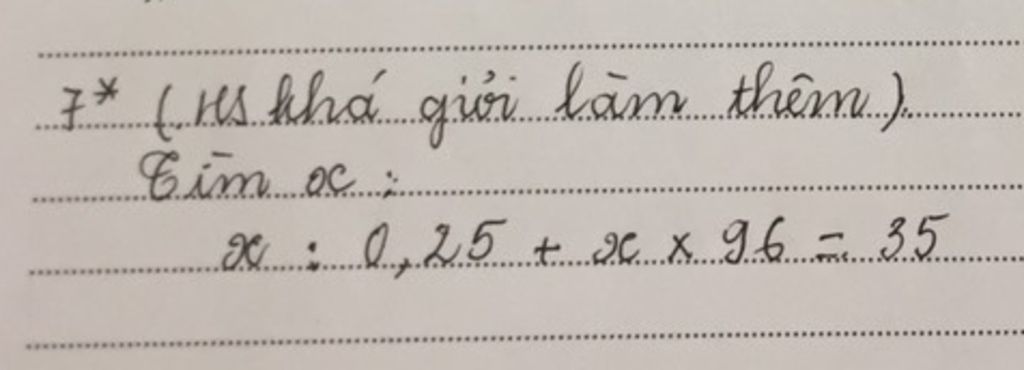 7* (HS khá giỏi làm thêm).
Tìm x :
x : 0,25 + x × 96 = 35